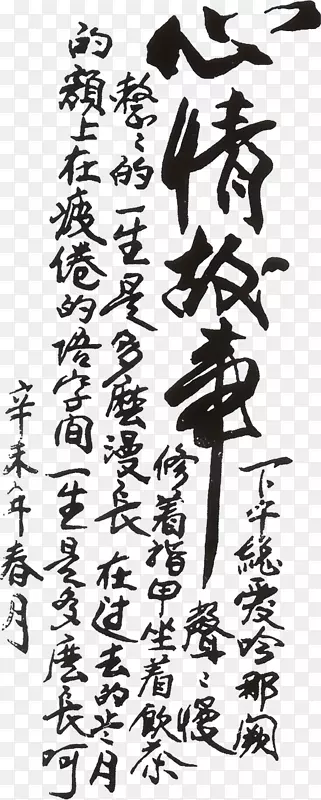 心情故事
下午總愛吟那阙
聲〻慢
修着指甲坐着飲茶
整〻的一生是多麼漫長在过去的岁月
的額上在疲倦的语字間一生是多麼長呵
辛未年春月